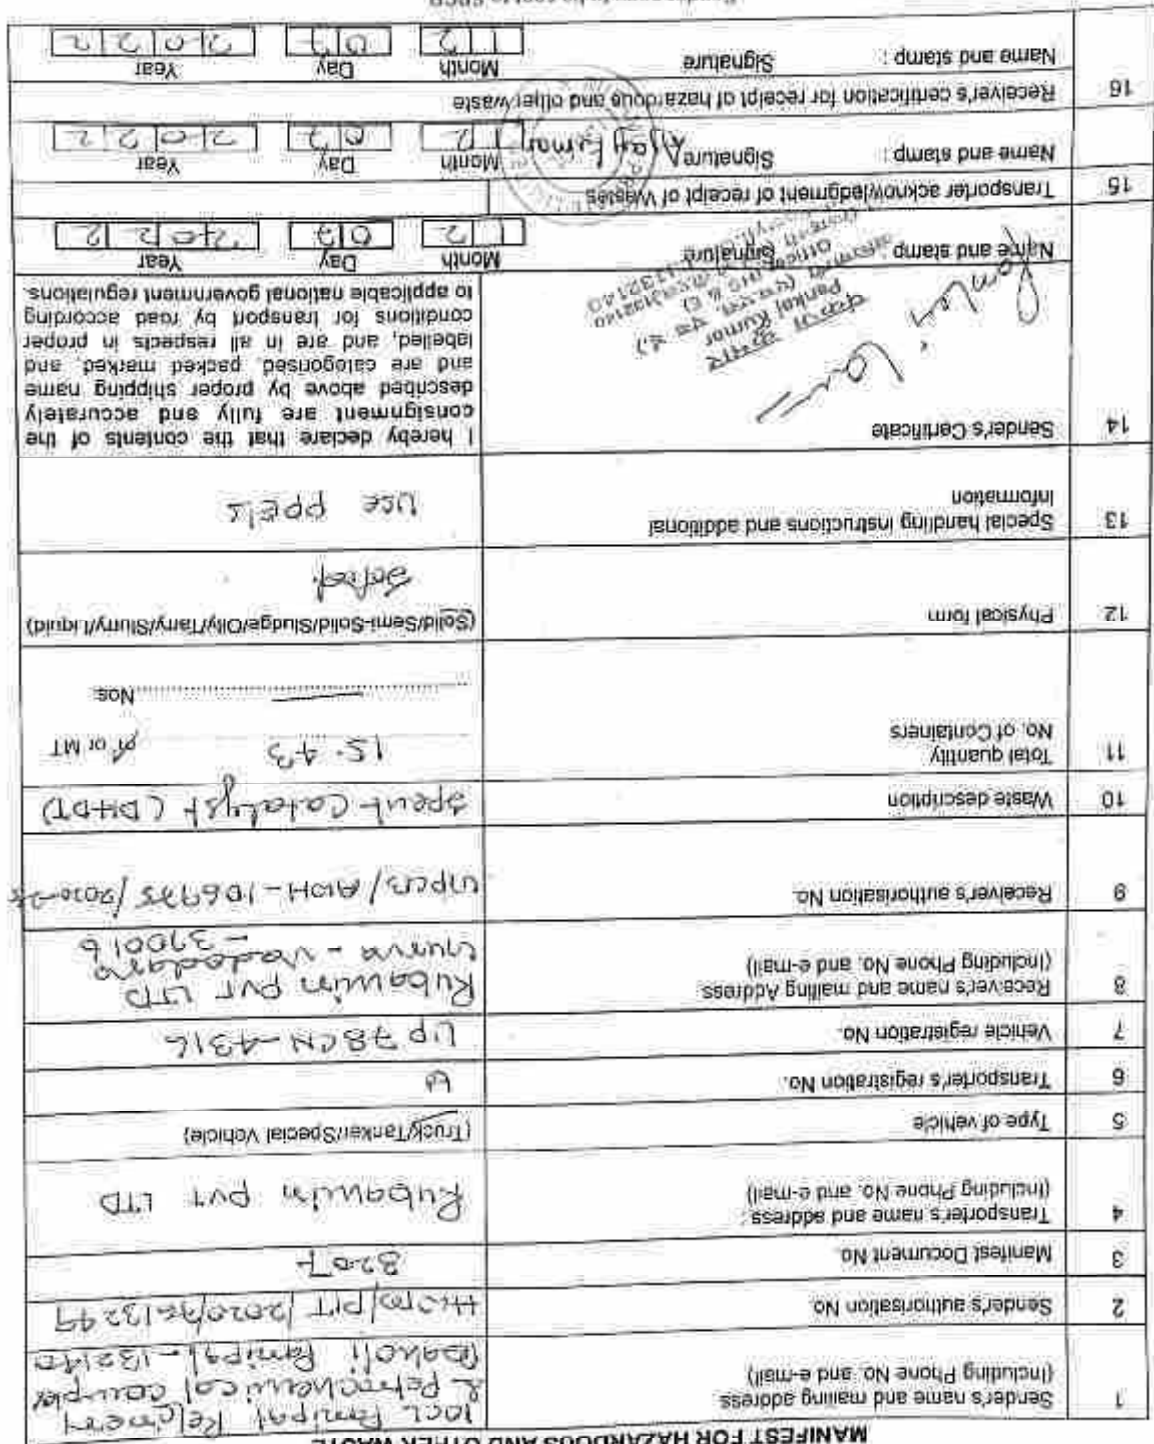 MANIFEST FOR HAZARDOUS AND OTHER WASTE
1 Sender's name and mailing address
(Including Phone No. and e-mail)
IOCL Panipat Refinery
& Petrochemical complex
Baholi Panipat-132140
2 Sender's authorisation No.
3 Manifest Document No. 3207
4 Transporter's name and address :
(Including Phone No. and e-mail)
Rubamin pvt LTD
5 Type of vehicle (Truck/Tanker/Special Vehicle)
6 Transporter's registration No.
7 Vehicle registration No. UP 78 CN-4316
8 Receiver's name and mailing Address
(Including Phone No. and e-mail)
Rubamin PVT LTD
- Vadodara
- 390016
9 Receiver's authorisation No.
10 Waste description Spent Catalyst (DHDT)
11 Total quantity
No. of Containers
15.43 m³ or MT
Nos.
12 Physical form (Solid/Semi-Solid/Sludge/Oily/Tarry/Slurry/Liquid)
Solid
13 Special handling instructions and additional
Information
Use PPE's
14 Sender's Certificate
I hereby declare that the contents of the
consignment are fully and accurately
described above by proper shipping name
and are categorised, packed marked, and
labelled, and are in all respects in proper
conditions for transport by road according
to applicable national government regulations.
Pankaj Kumar
Name and stamp : Signature Month Day Year
12 07 2022
15 Transporter acknowledgment of receipt of Wastes
Name and stamp : Signature Ajay Kumar Month Day Year
12 07 2022
16 Receiver's certification for receipt of hazardous and other waste
Name and stamp : Signature Month Day Year
12 07 2022